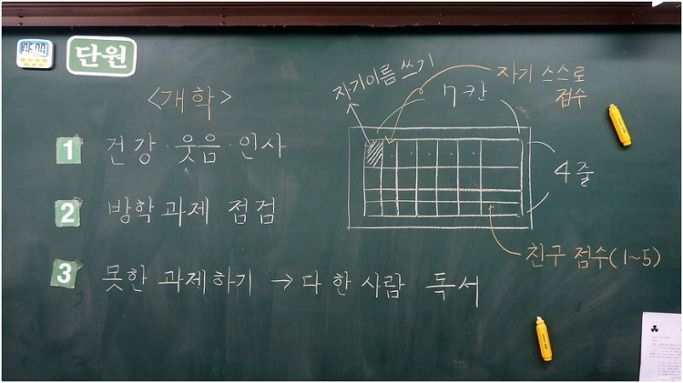 단원
<개학>
1 건강 웃음 인사
2 방학과제 점검
3 못한 과제하기 → 다 한 사람 독서
자기이름 쓰기
자기 스스로
점수
7칸
4줄
친구 점수(1~5)